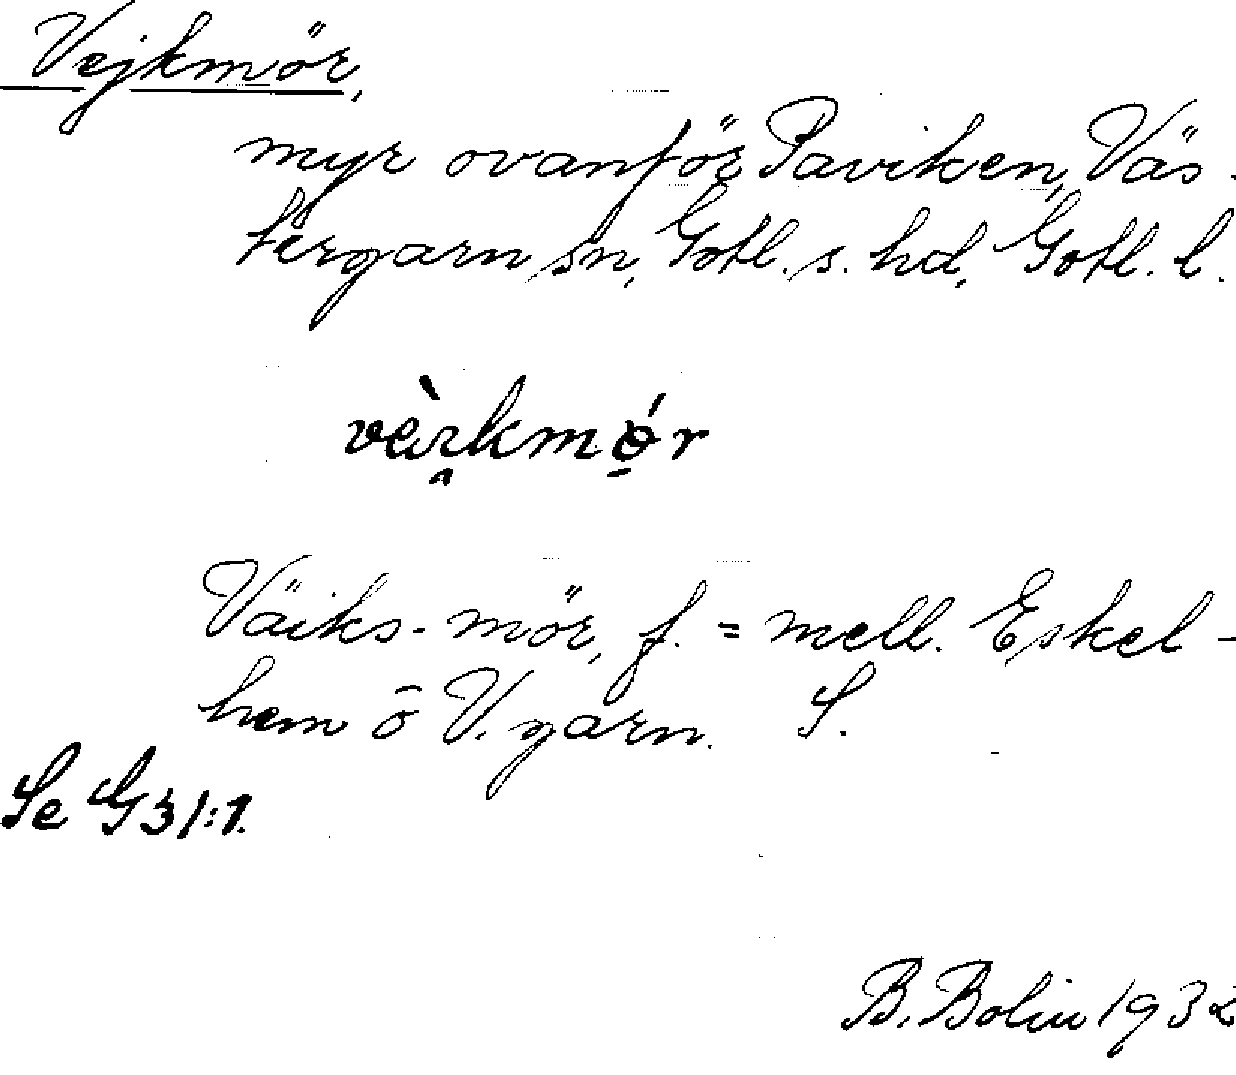 Vejkmör,
myr ovanför Paviken, Väs-
tergarn sn, Gotl. s. hd, Gotl. l.
Väiks-mör, f. = mell. Eskel-
hem ō V. garn. S.
Se G 31:1.
B. Bolin 1932